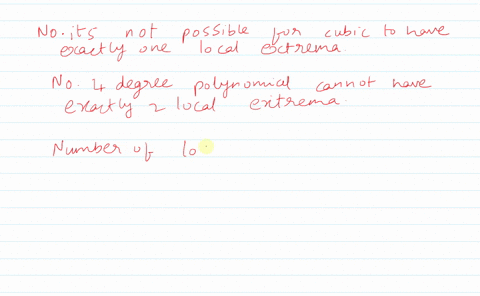 No. it's not possible for cubic to have
exactly one local extrema.
No. 4 degree polynomial cannot have
exactly 2 local extrema.
Number of lo